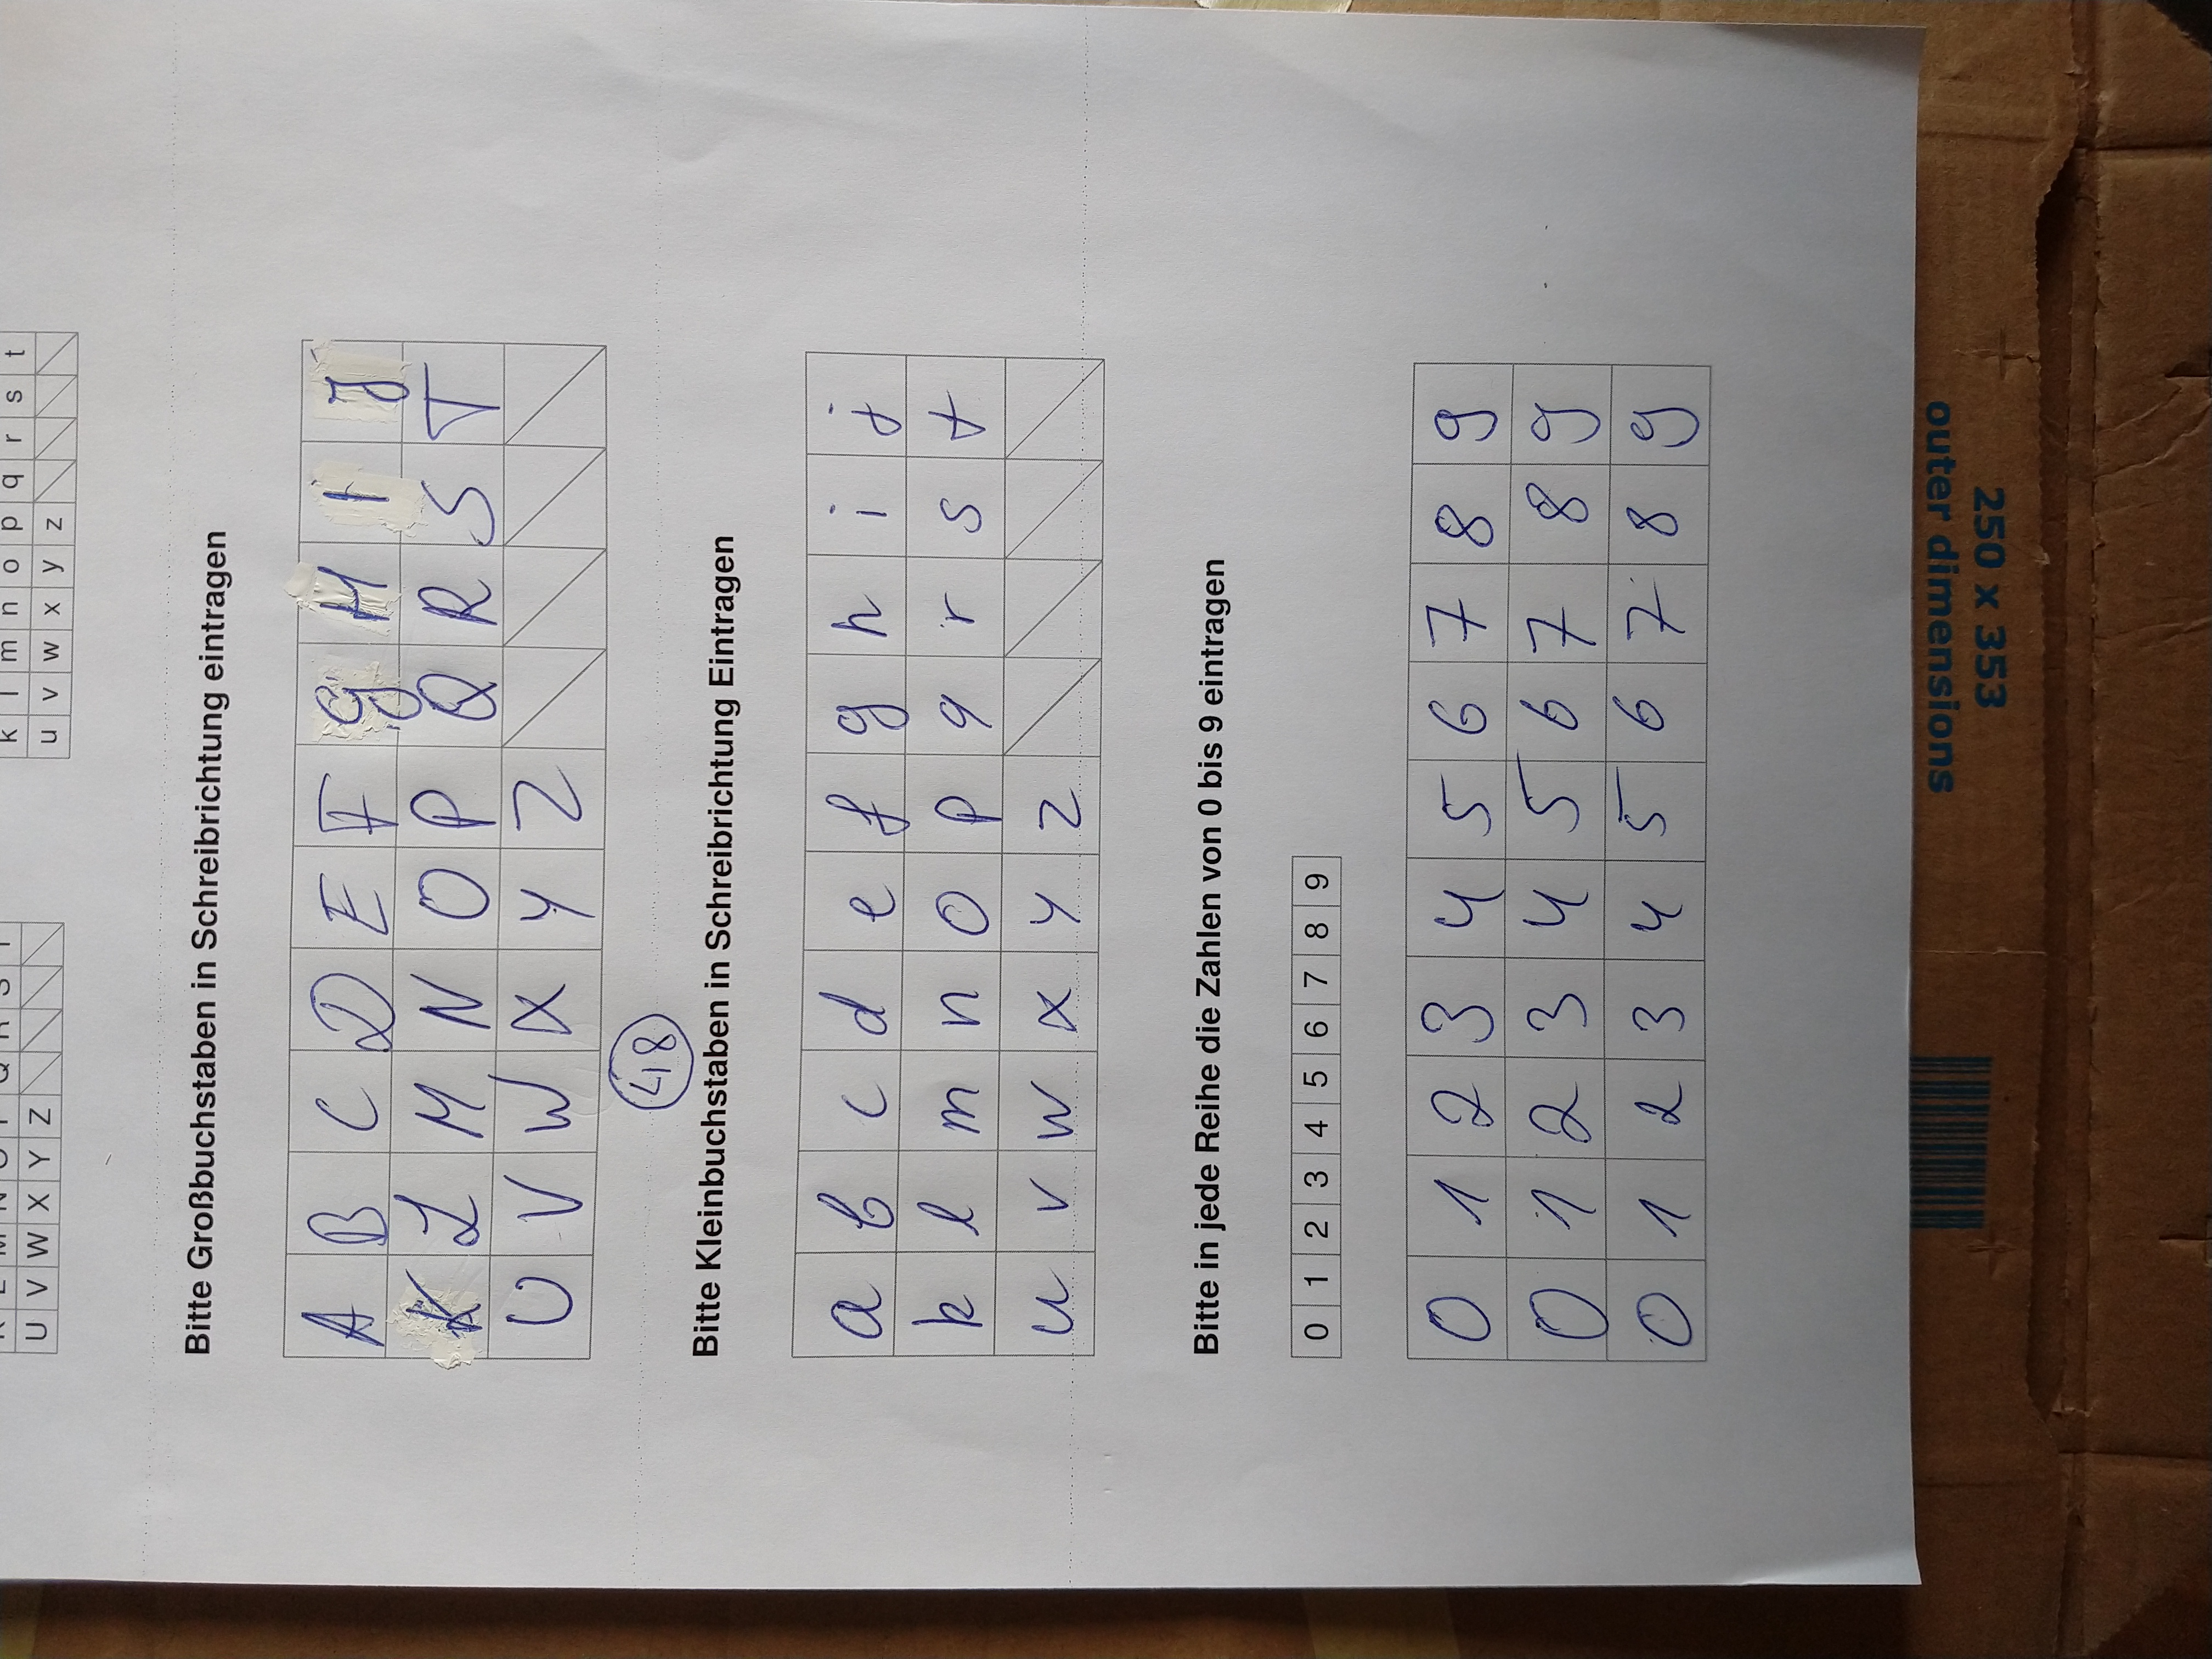 K L M N O P Q R S T
k l m n o p q r s t
U V W X Y Z
u v w x y z
Bitte Großbuchstaben in Schreibrichtung eintragen
A B C D E F G H I J
K L M N O P Q R S T
U V W X Y Z
48
Bitte Kleinbuchstaben in Schreibrichtung Eintragen
a b c d e f g h i j
k l m n o p q r s t
u v w x y z
Bitte in jede Reihe die Zahlen von 0 bis 9 eintragen
0 1 2 3 4 5 6 7 8 9
0 1 2 3 4 5 6 7 8 9
0 1 2 3 4 5 6 7 8 9
0 1 2 3 4 5 6 7 8 9
250 x 353
outer dimensions